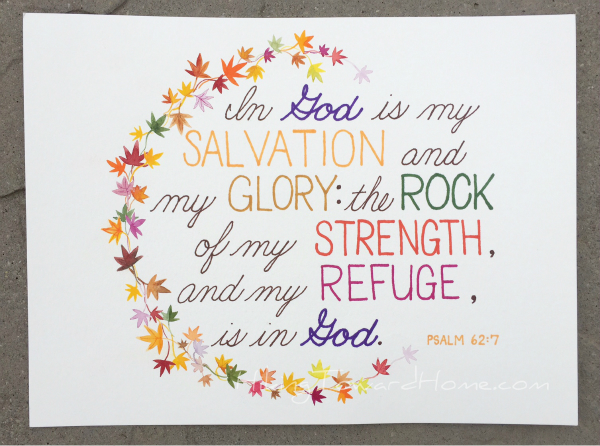 In God is my
SALVATION and
my GLORY: the ROCK
of my STRENGTH,
and my REFUGE,
is in God.
PSALM 62:7